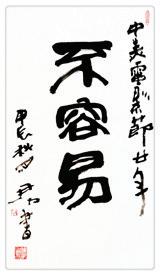 中美電影節廿年
不容易
甲辰秋
書